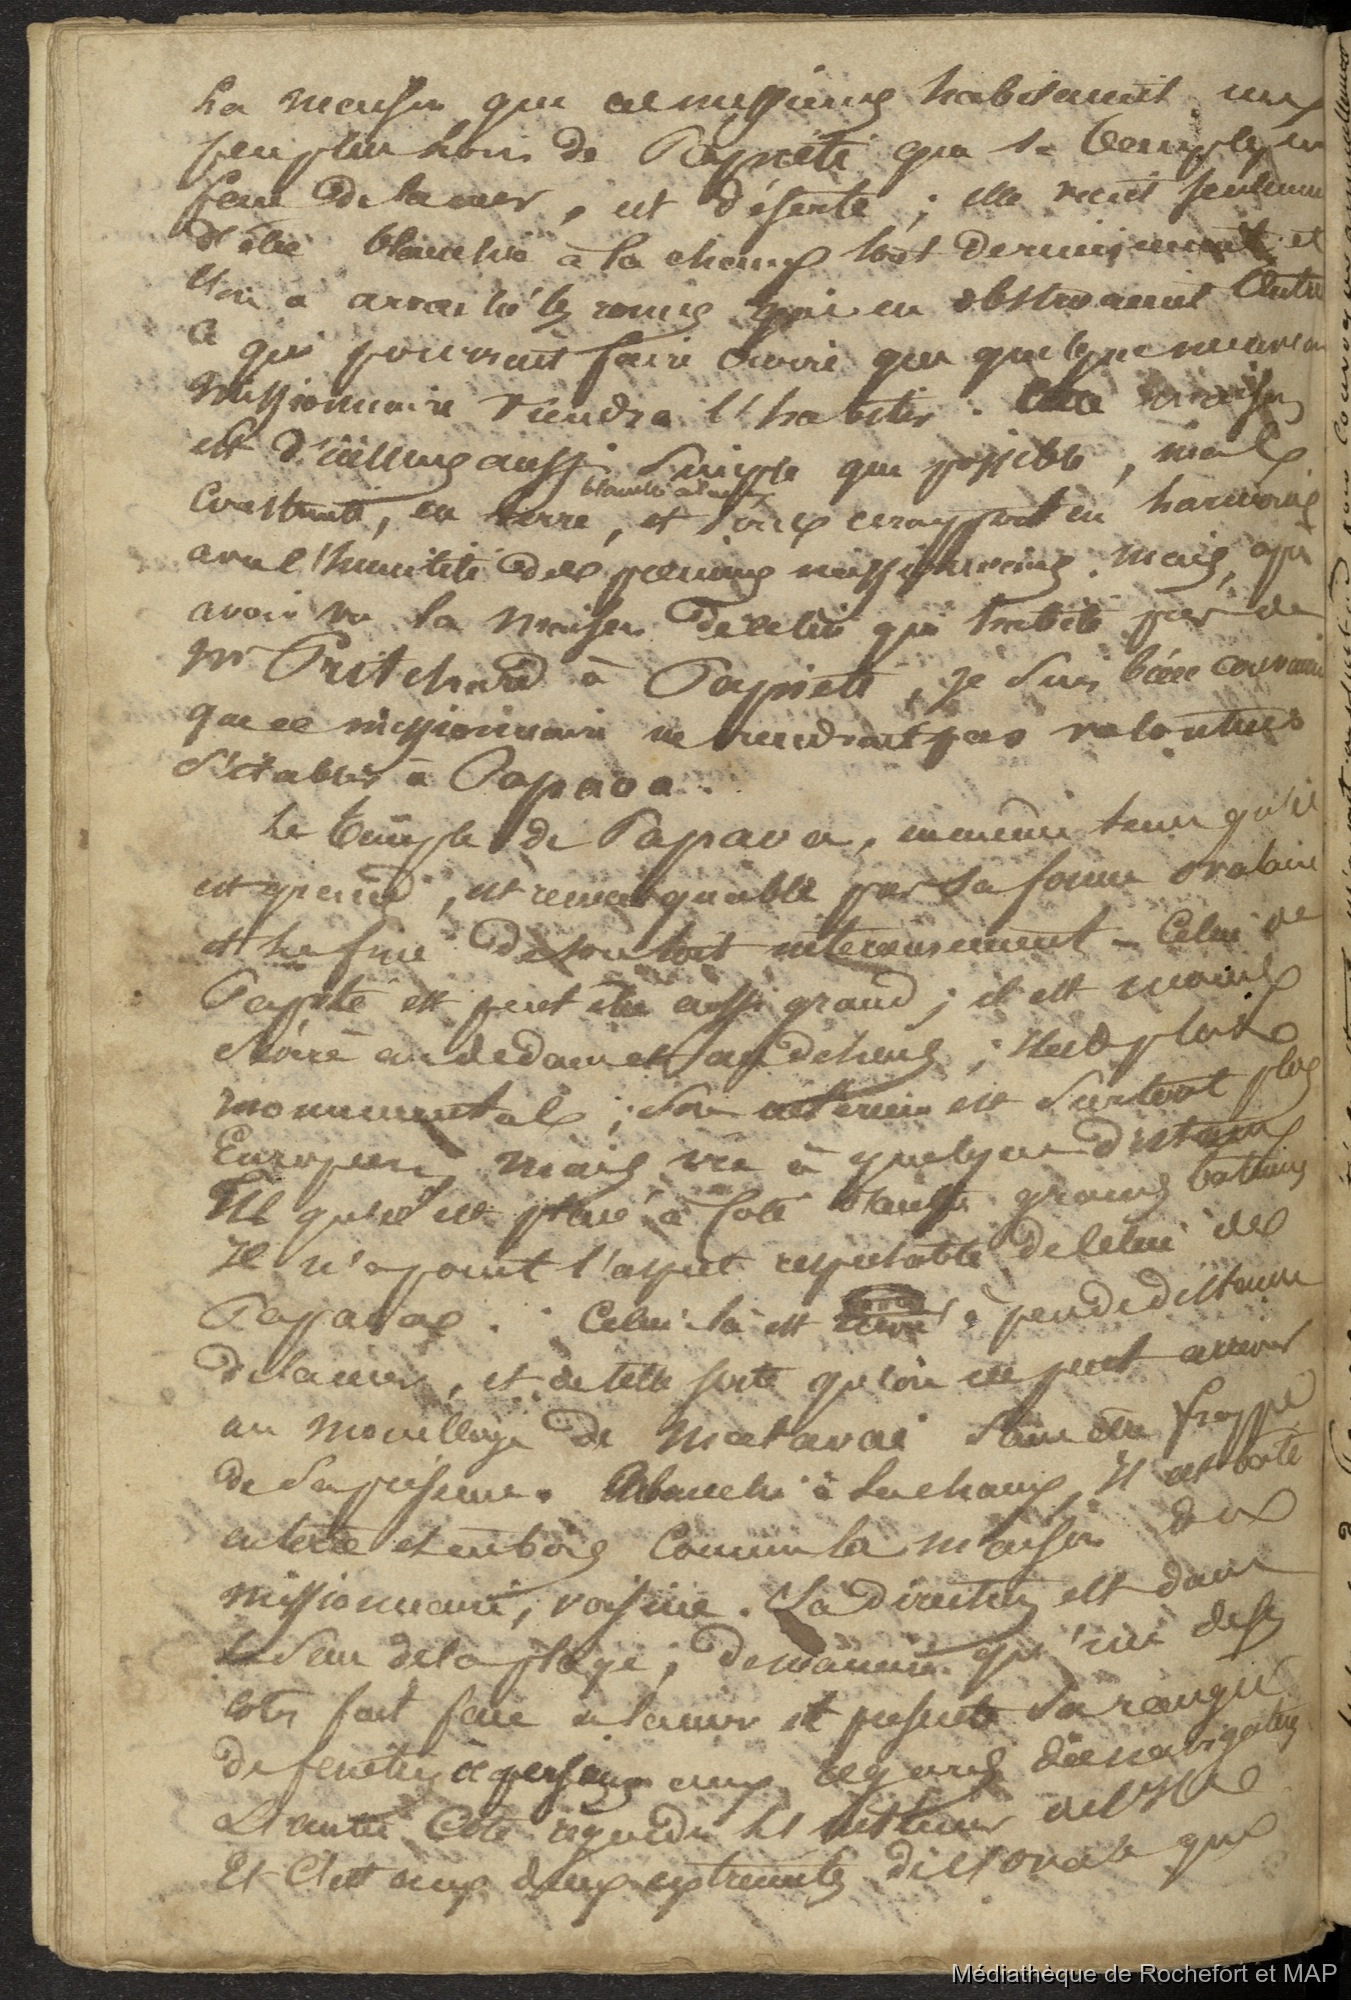 La maison que ces messieurs habitaient, un
peu plus loin de Papaeti que le temple, en
face de la mer, est déserte ; elle vient seulement
d'être blanchie à la chaux tout dernièrement et
l'on a arraché les qui en obstruaient l'entrée
ce qui pourrait faire croire que quelque nouveau
missionnaire viendra l'habiter. Cette maison
est d'ailleurs aussi simple que possible, mal
blanchie à la chaux
construite, en terre, et sous ce rapport en harmonie
avec l'humilité des pauvres missionnaires. Mais, après
avoir vu la maison de celui qui habite près de
Mr Pritchard à Papaeti, je suis bien convaincu
que ce missionnaire ne viendrait pas volontiers
s'établir à Papava.
Le temple de Papava, en même temps qu'il
est grand, est remarquable par sa forme ovalaire
et le fini de son toit intérieurement - Celui de
Papeïté est peut être aussi grand ; il est moins
au dedans et au dehors ; il est plus
monumental ; son intérieur est surtout plus
Européen, mais vu à quelque distance
tel qu'il est placé à côté d'autres grands bâtimens
Il n'a point l'aspect respectable de celui de
Papava. Celui-là est à peu de distance
de la mer, et de telle sorte qu'on ne peut arriver
au mouillage de Matavai sans être frappé
de sa présence. Blanchi à la chaux, il est bâti
en terre et en bois comme la maison du
missionnaire, voisine. Sa direction est dans
le sens de la plage ; de manière qu'un de ses
côtés fait face à la mer et présente sa rangée
de fenêtres à persiennes aux regards des navigateurs
L'autre côté regarde les hauteurs de l'Isle
Et c'est aux deux extrémités de l'ovale que
Médiathèque de Rochefort et MAP